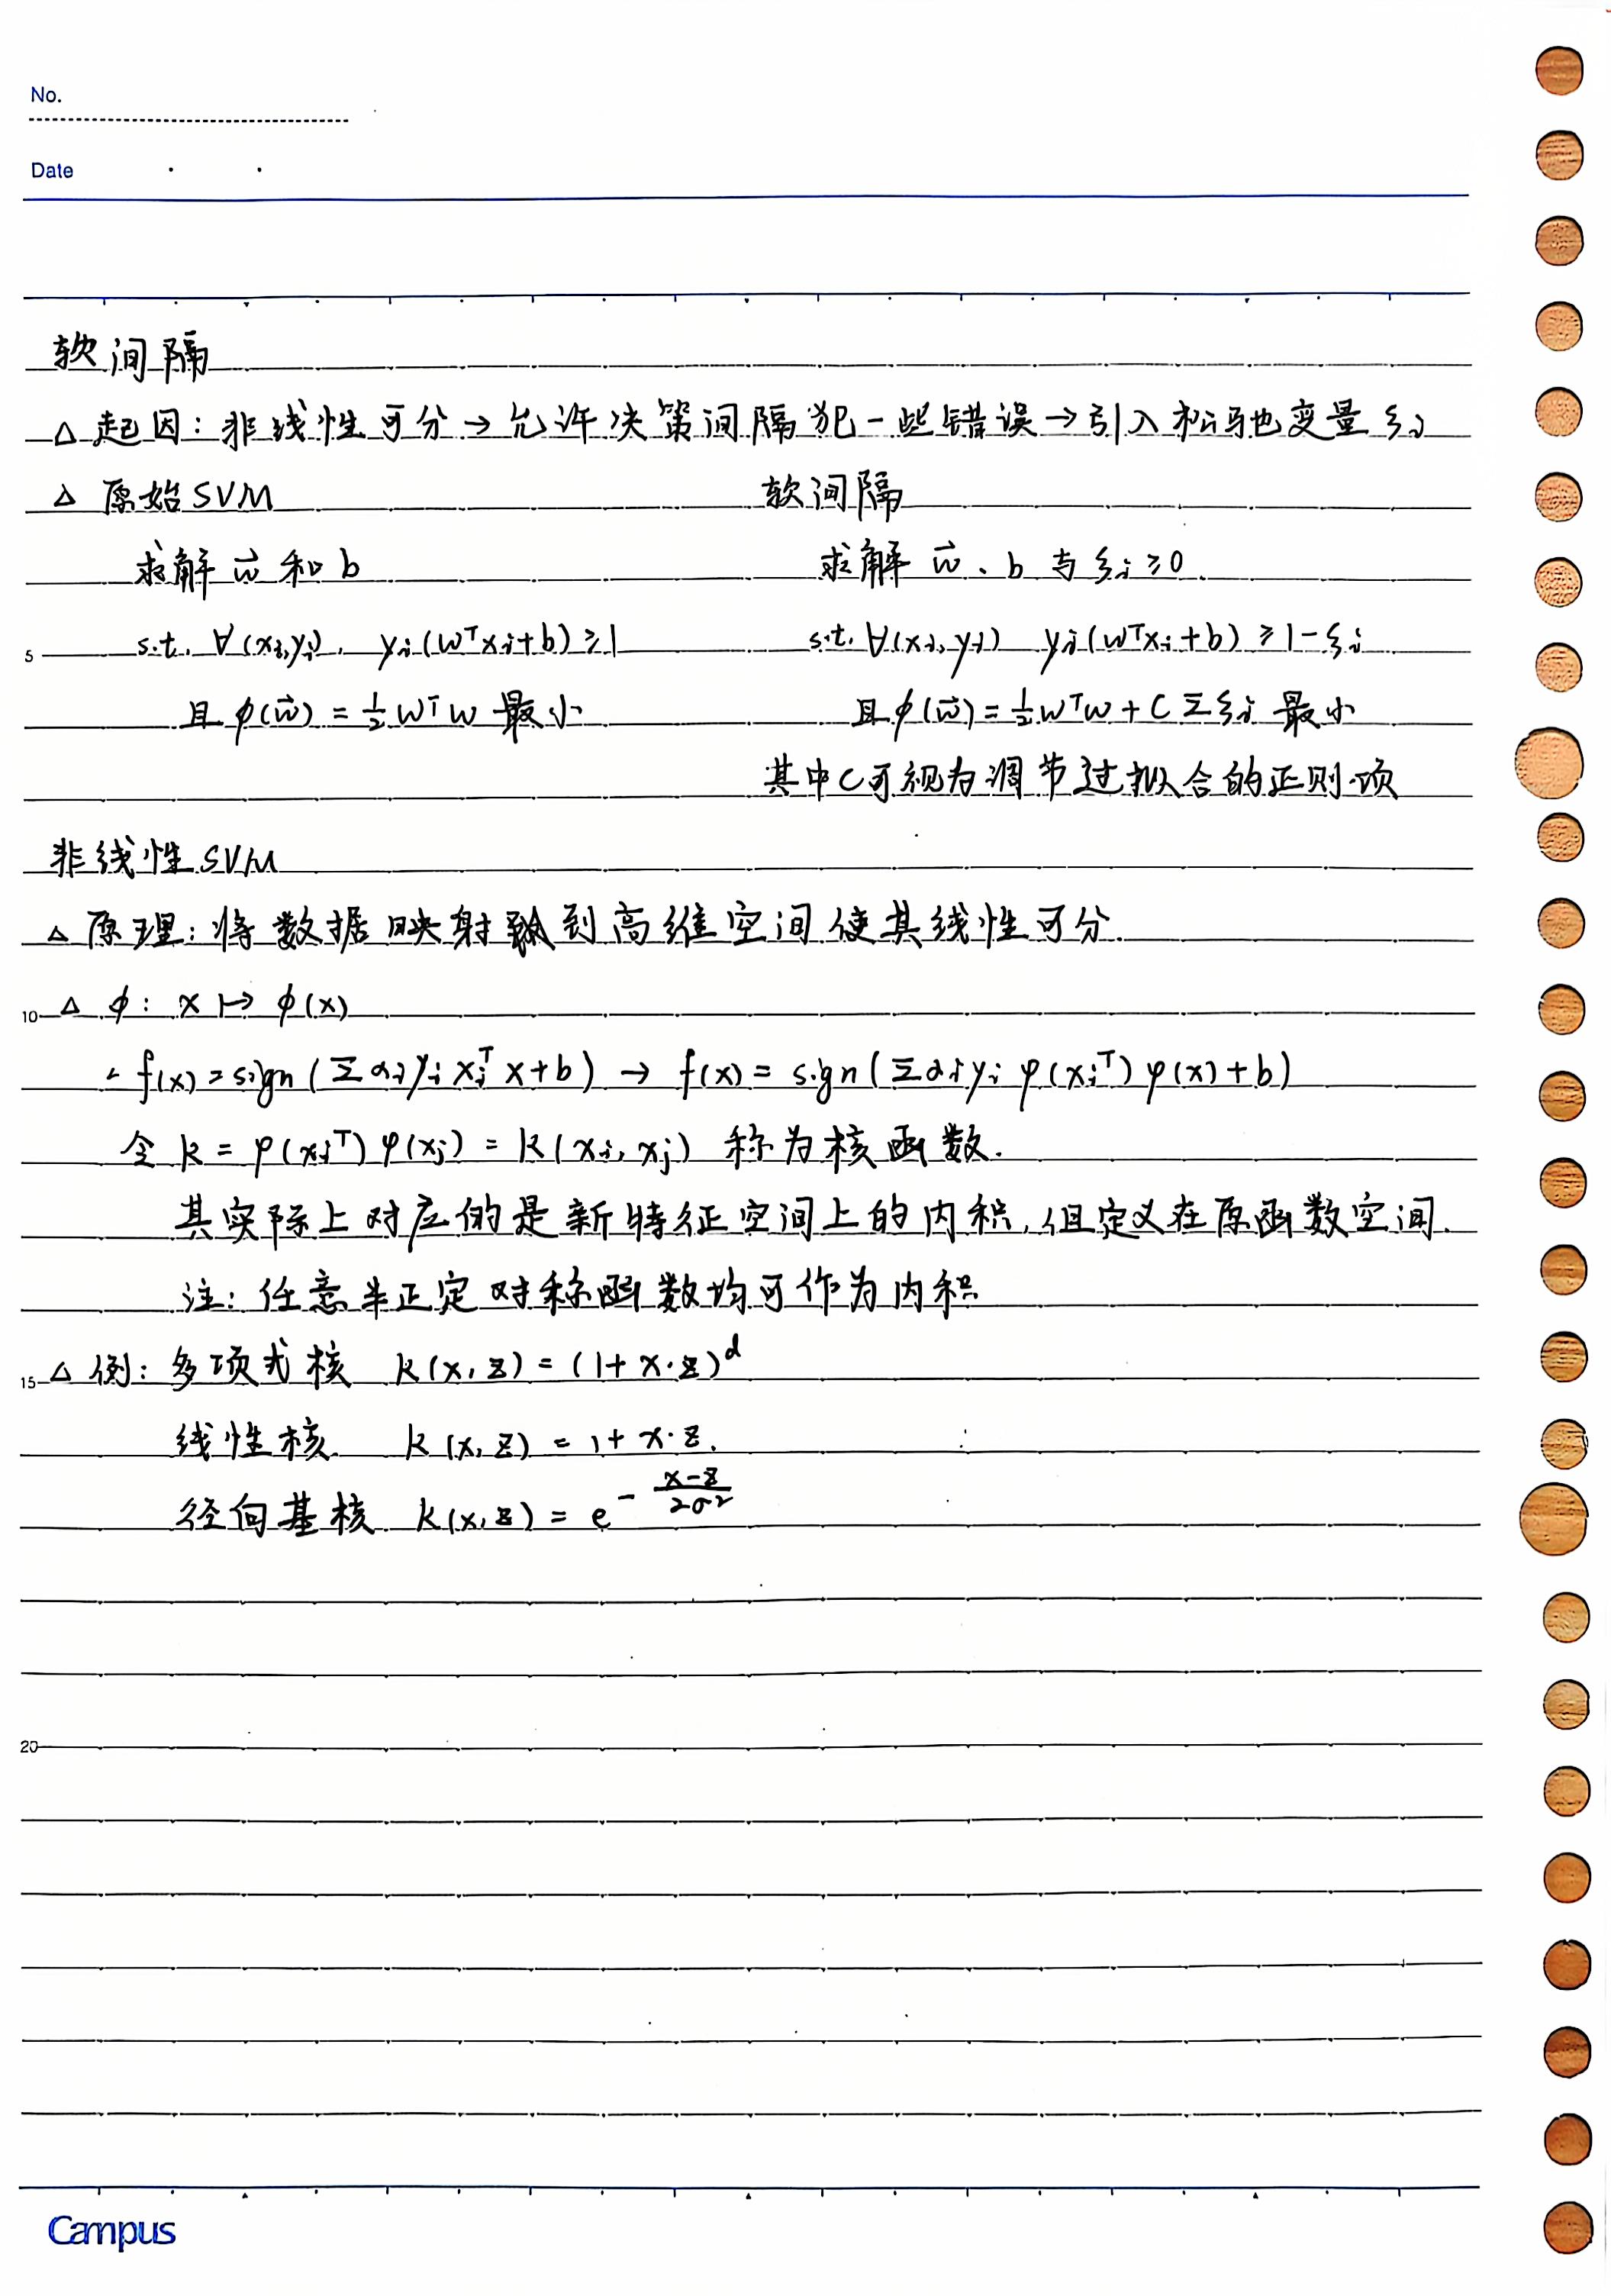 No.
Date
软间隔
△ 起因：非线性可分 → 允许决策间隔犯一些错误 → 引入松驰变量 ξi
△ 原始SVM 软间隔
求解 w⃗ 和 b 求解 w⃗、b 与 ξi ≥ 0.
5 s.t. ∀(xi,yi), yi(wᵀxi+b) ≥ 1 s.t. ∀(xi,yi) yi(wᵀxi+b) ≥ 1-ξi
且 φ(w⃗) = ½wᵀw 最小 且 φ(w⃗) = ½wᵀw + CΣξi 最小
其中C可视为调节过拟合的正则项
非线性SVM
△ 原理：将数据映射到高维空间使其线性可分.
10 △ φ: x ↦ φ(x)
f(x) = sign(Σαiyixiᵀx+b) → f(x) = sign(Σαiyiφ(xiᵀ)φ(x)+b)
令 k = φ(xiᵀ)φ(xj) = k(xi, xj) 称为核函数.
其实际上对应的是新特征空间上的内积，但定义在原函数空间.
注：任意半正定对称函数均可作为内积
15 △ 例：多项式核 k(x,z) = (1+x·z)ᵈ
线性核 k(x,z) = 1+x·z.
径向基核 k(x,z) = e^(-(x-z)/(2σ²))
20
Campus